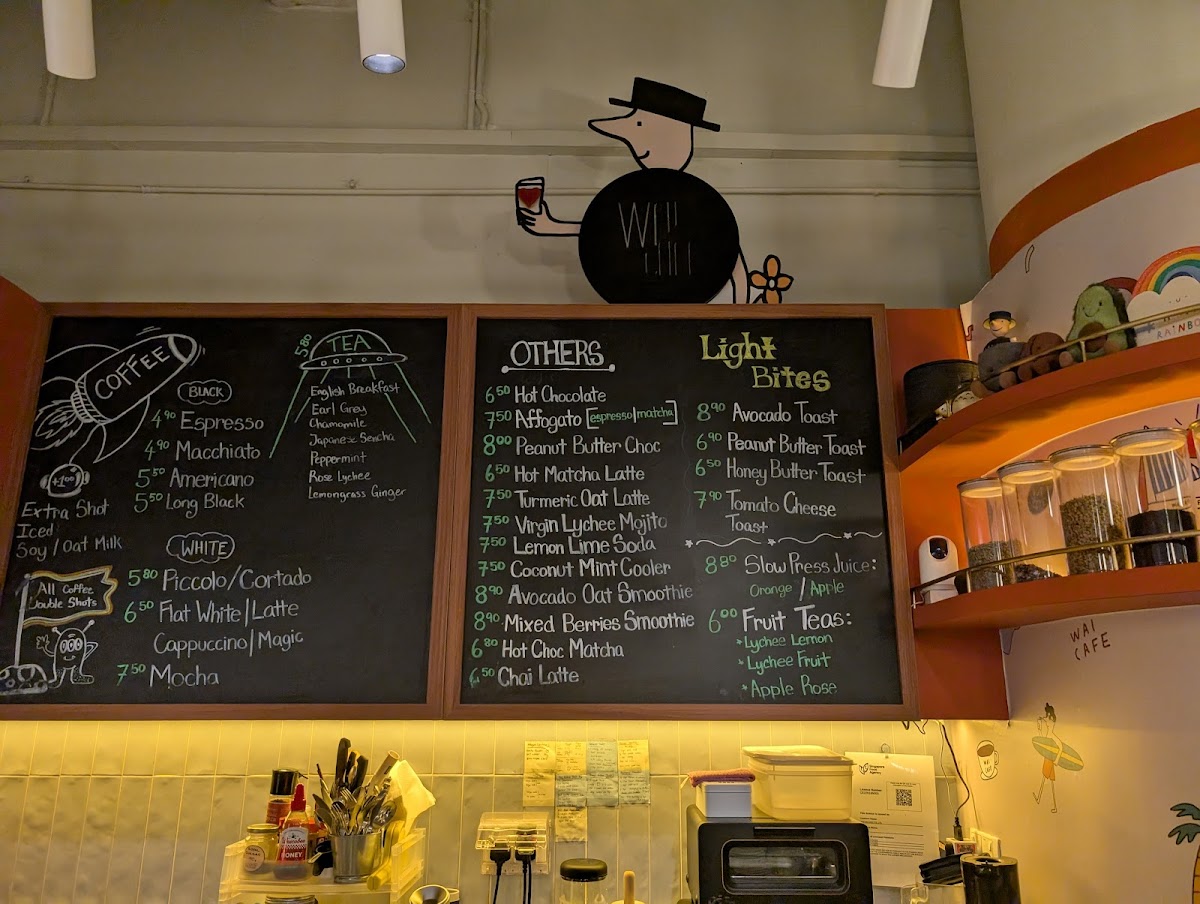 COFFEE
BLACK
4.90 Espresso
4.90 Macchiato
5.50 Americano
5.50 Long Black
+1.00
Extra Shot
Iced
Soy / Oat Milk
WHITE
5.80 Piccolo/Cortado
6.50 Flat White/Latte
Cappuccino/Magic
7.50 Mocha
All Coffee
Double Shots
5.80 TEA
English Breakfast
Earl Grey
Chamomile
Japanese Sencha
Peppermint
Rose Lychee
Lemongrass Ginger
OTHERS
6.50 Hot Chocolate
7.50 Affogato [espresso|matcha]
8.00 Peanut Butter Choc
6.50 Hot Matcha Latte
7.50 Turmeric Oat Latte
7.50 Virgin Lychee Mojito
7.50 Lemon Lime Soda
7.50 Coconut Mint Cooler
8.90 Avocado Oat Smoothie
8.90 Mixed Berries Smoothie
6.80 Hot Choc Matcha
6.50 Chai Latte
Light
Bites
8.90 Avocado Toast
6.90 Peanut Butter Toast
6.50 Honey Butter Toast
7.90 Tomato Cheese
Toast
8.80 Slow Press Juice:
Orange / Apple
6.00 Fruit Teas:
*Lychee Lemon
*Lychee Fruit
*Apple Rose
RAINBO
WAI
CAFE
HONEY